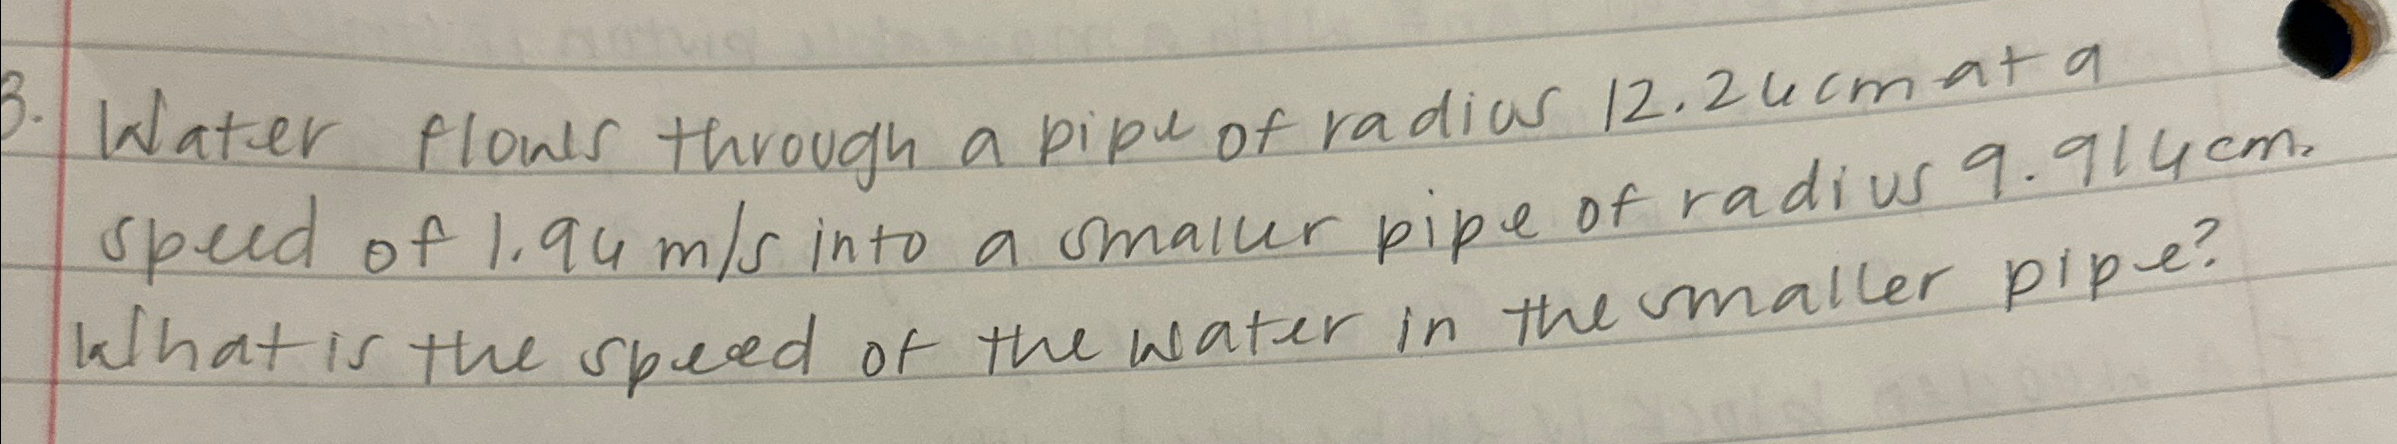 3. Water flows through a pipe of radius 12.24cm at a
speed of 1.94 m/s into a smaller pipe of radius 9.914cm.
What is the speed of the water in the smaller pipe?